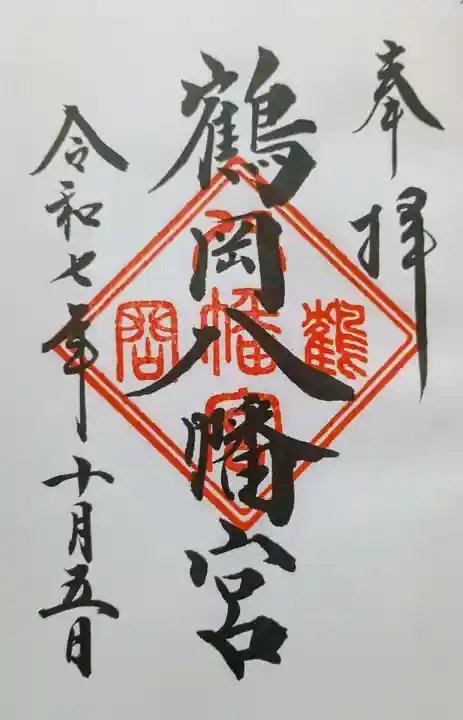 奉拝
鶴岡八幡宮
令和七年十月五日
鶴
八幡宮
岡